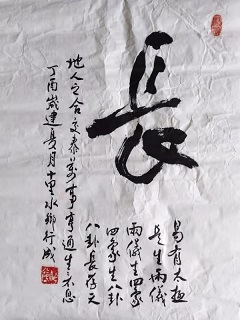 長
易有太極
是生兩儀
兩儀生四象
四象生八卦
八卦長存天
地人之合交泰萬事亨通生不息
丁酉歲建夏月十里水鄉行成